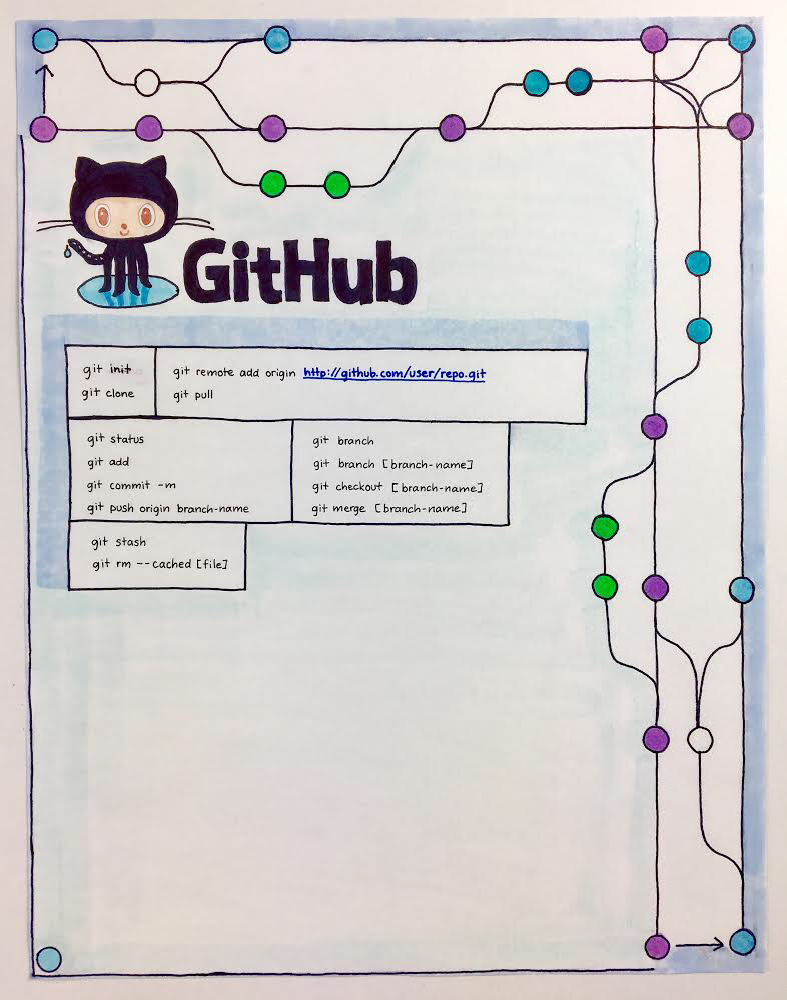 GitHub
git init
git clone
git remote add origin http://github.com/user/repo.git
git pull
git status
git add
git commit -m
git push origin branch-name
git branch
git branch [branch-name]
git checkout [branch-name]
git merge [branch-name]
git stash
git rm --cached [file]